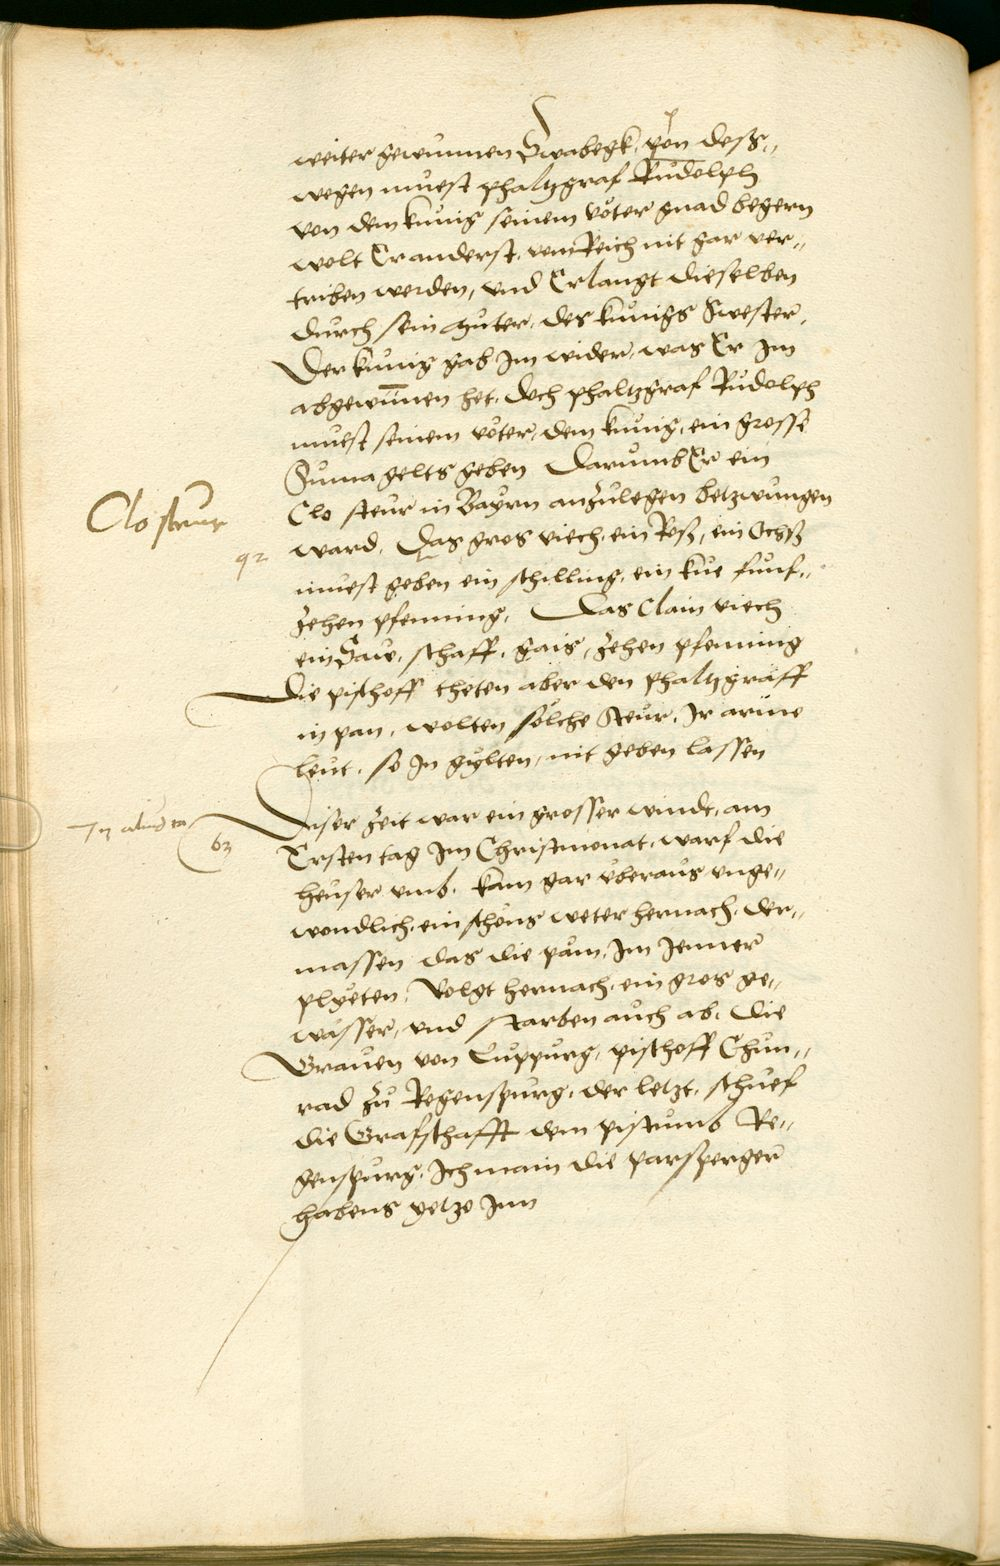 weiter gewunnen Swabegk, von desz„
wegen muest phaltzgraf Rudolph
von dem kunig seinem vöter gnad begern
wolt Er anderst, vom Reich nit gar ver„
triben werden, vnd Erlangt dieselben
durch sein muter, des kunigs Swester,
Der kunig gab Im wider, was Er Im
abgewunnen het, doch phaltzgraf Rudolph
muest seinem vöter, dem kunig, ein grosse
Suma gelts geben Darumb Er ein
Clo steur in Bayrn anzulegen betzwungen
Clo steur
ward, Das gros viech, ein Rosz, ein Ochsz
92
muest geben ein schilling, ein kue funf„
zehen pfenning, Das Clain viech
ein Saw, schaff, gais, zehen pfenning
Die pischoff theten aber den phaltzgraff
in pan, wolten solche steur, Ir arme
leut, so In gylten, nit geben lassen
Diser zeit war ein grosser windt, am
63
Ersten tag Im Christmonat, warf die
heuser vmb, kam gar vberaus vnge„
wondlich, ein schöns weter hernach, der„
massen das die päm, Im Jenner
plyeten, Volgt hernach, ein gros ge„
wässer, vnd starben auch ab, die
Grauen von Luppurg, pischoff Chun„
rad zu Regenspurg, der letzt, schuef
die Grafschafft dem pistumb Re„
genspurg, Ich main die parsperger
habens yetzo Inn